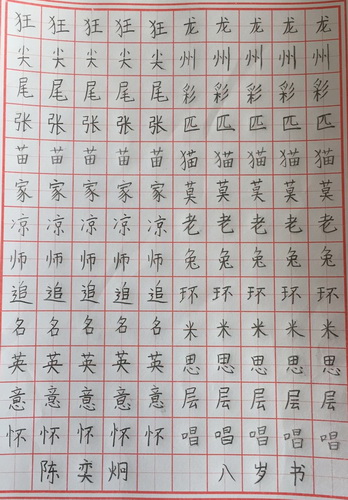 狂狂狂狂狂龙龙龙龙龙
尖尖尖尖尖州州州州州
尾尾尾尾尾彩彩彩彩彩
张张张张张匹匹匹匹匹
苗苗苗苗苗猫猫猫猫猫
家家家家家莫莫莫莫莫
凉凉凉凉凉老老老老老
师师师师师兔兔兔兔兔
追追追追追环环环环环
名名名名名米米米米米
英英英英英思思思思思
意意意意意层层层层层
怀怀怀怀怀唱唱唱唱唱
陈奕炯八岁书